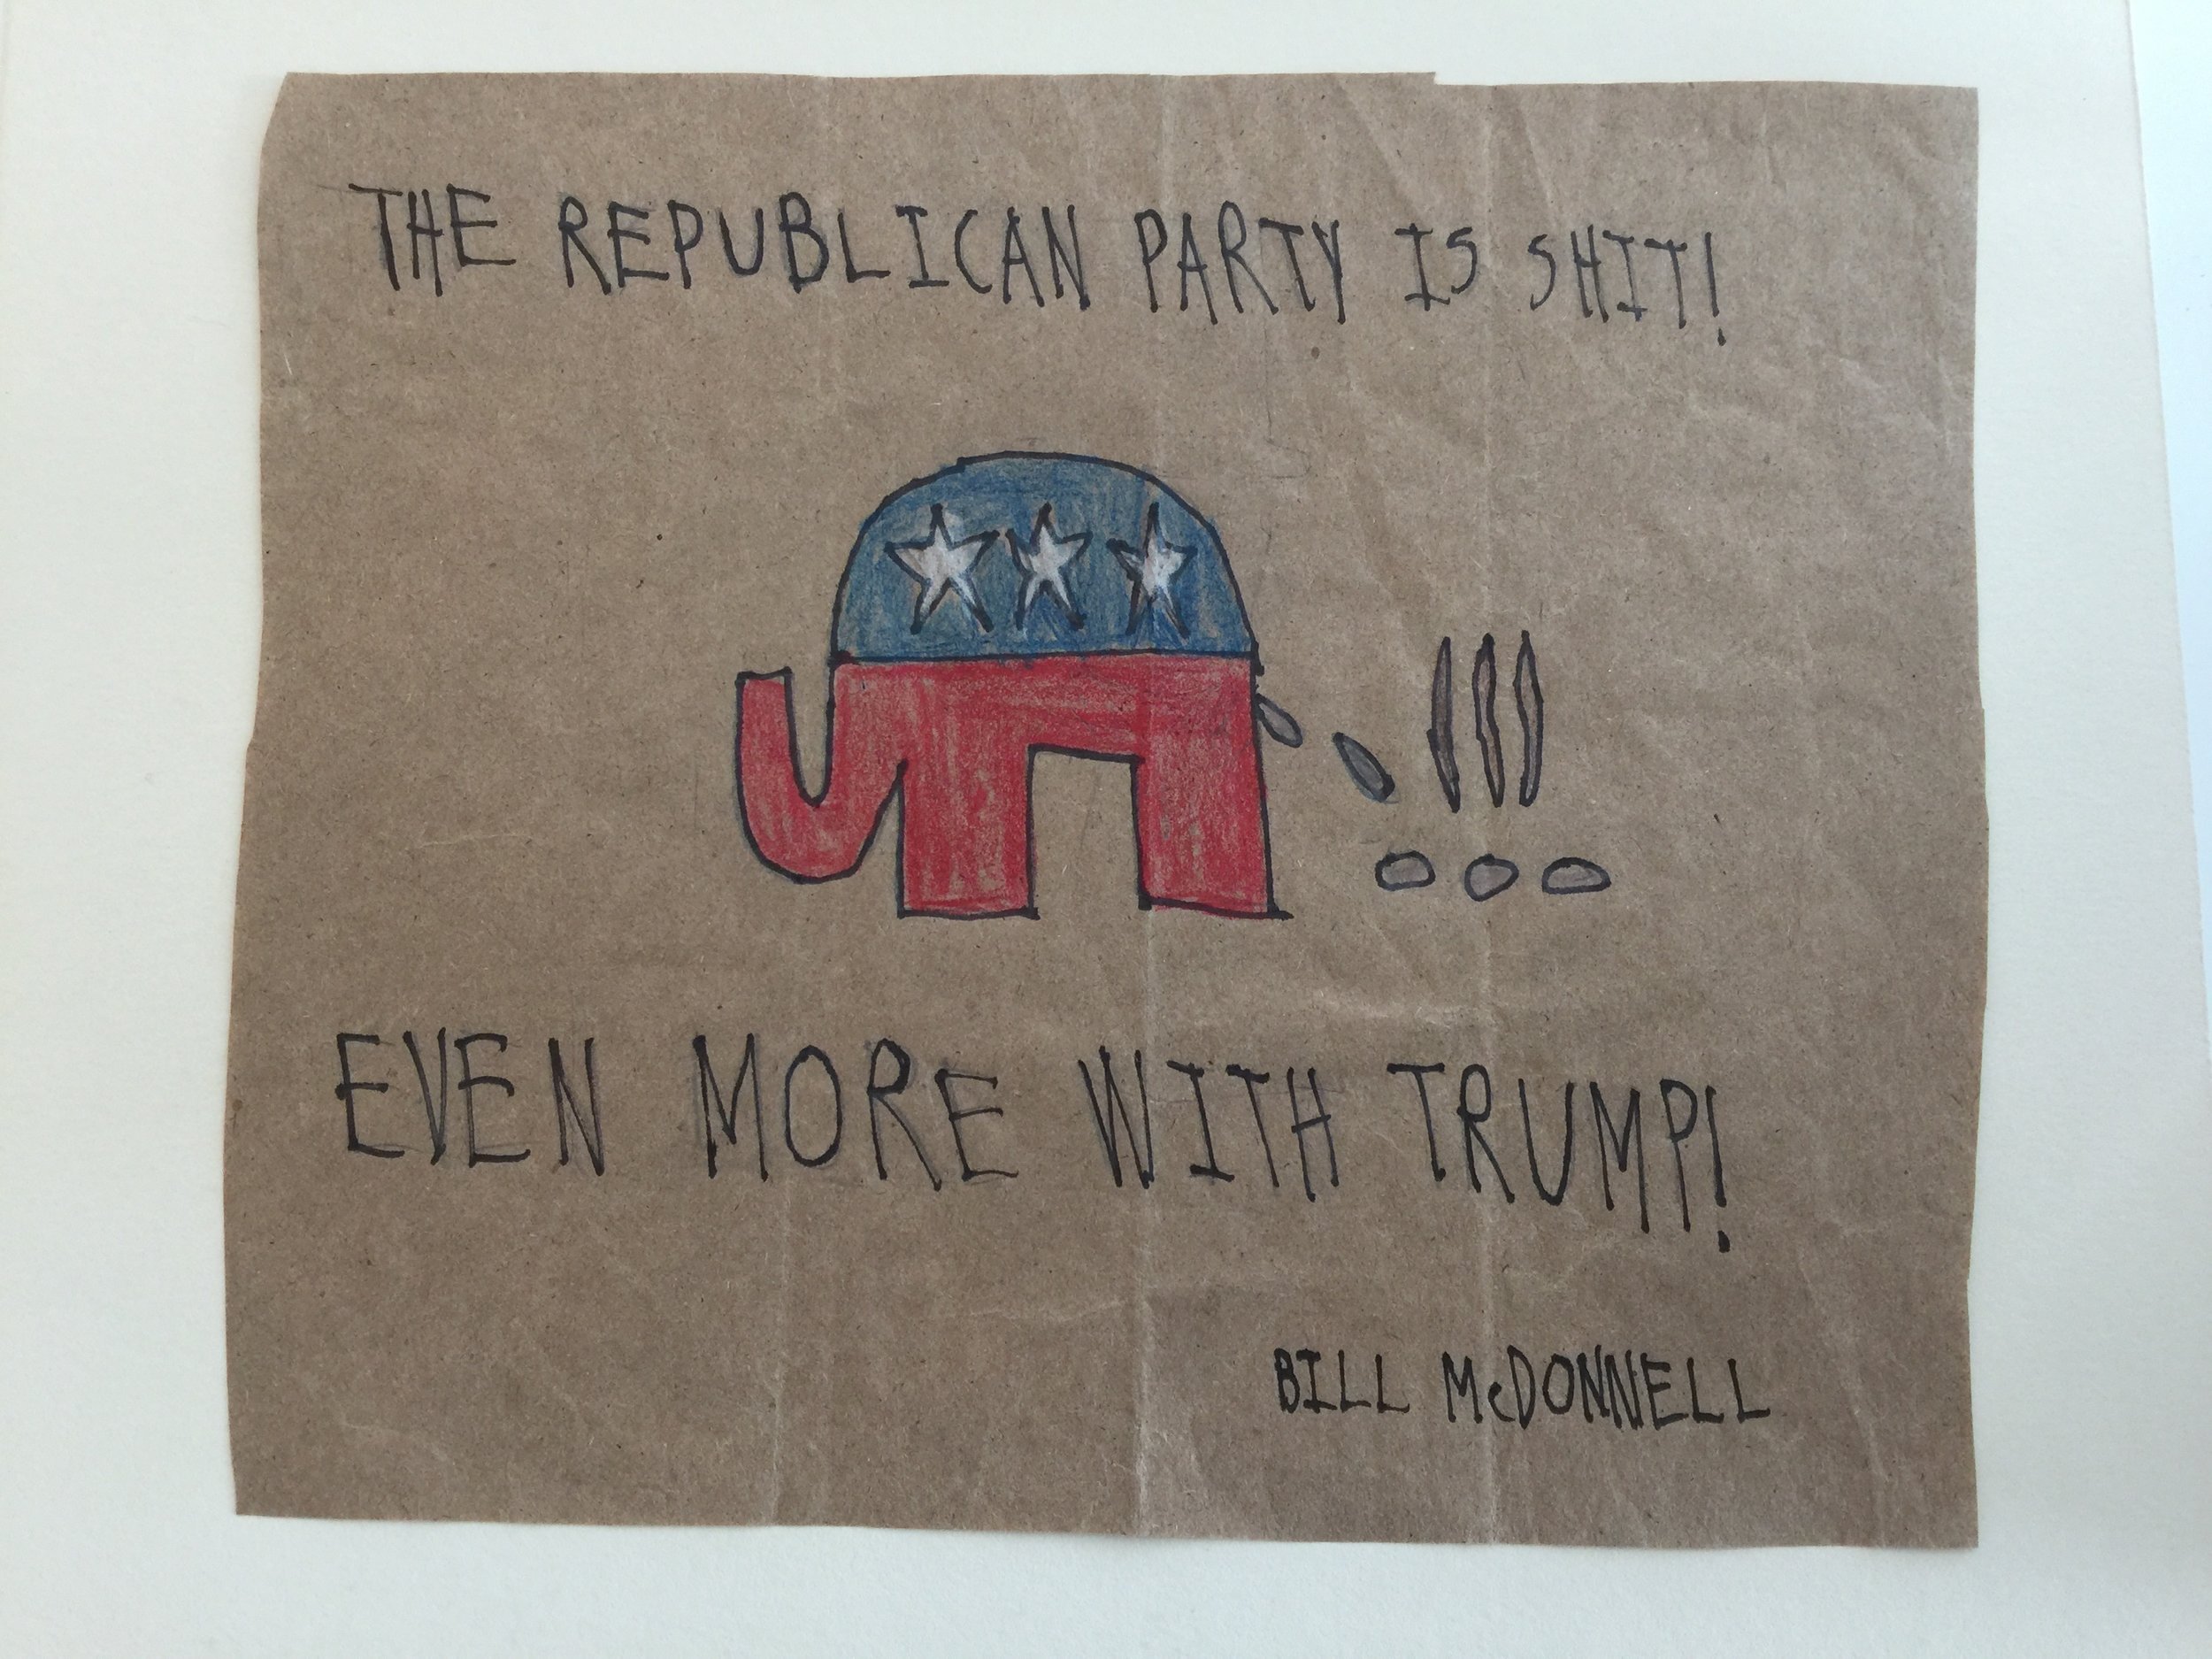 THE REPUBLICAN PARTY IS SHIT!
EVEN MORE WITH TRUMP!
BILL McDONNELL